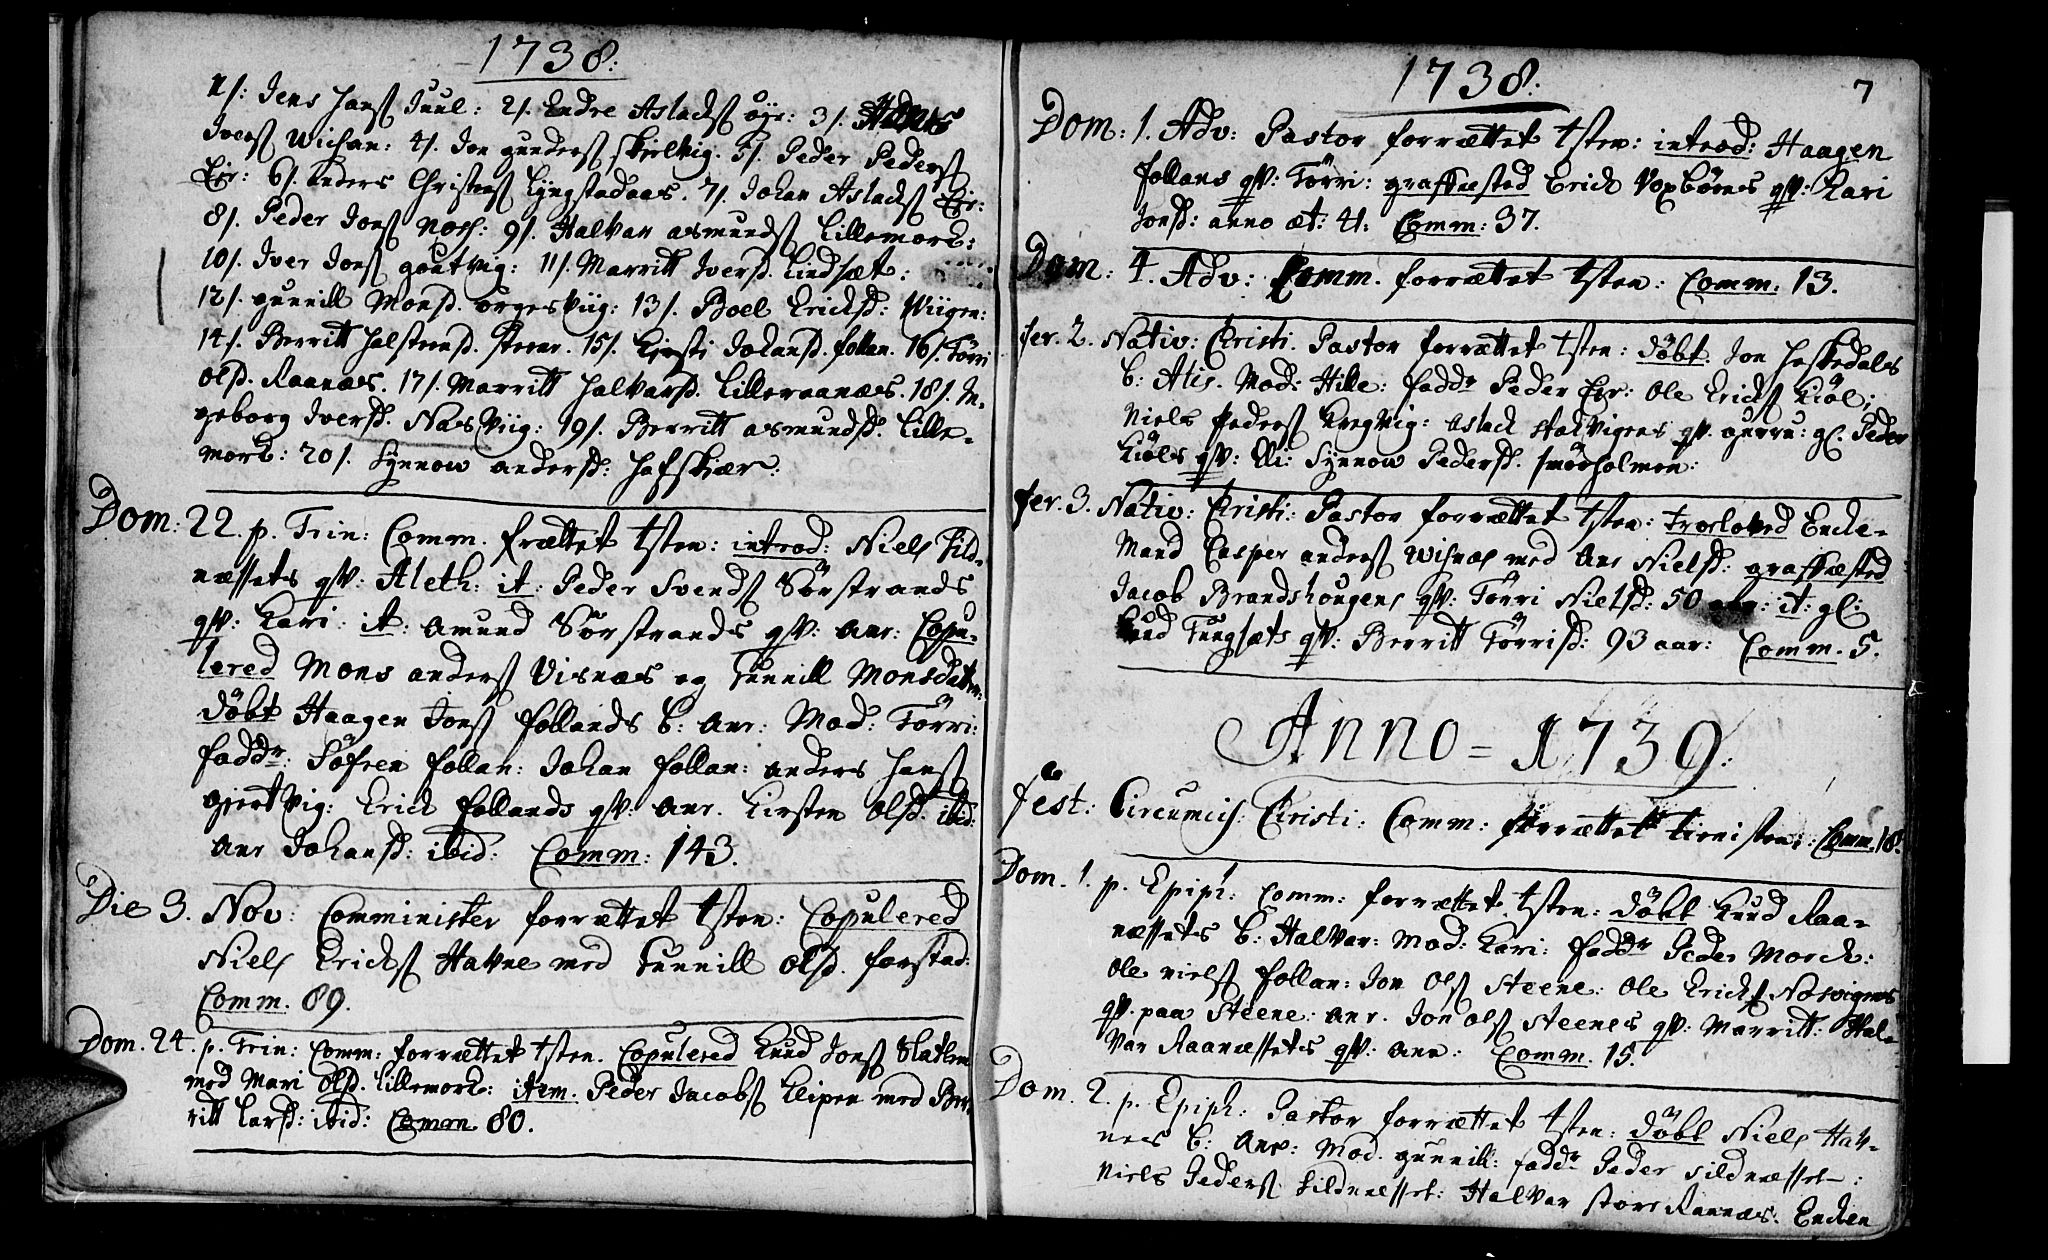 1738:
1/: Jens Hanss Juul: 2/. Endre Aslachs øye: 3/.
Ivers Wishan: 4/. Jon gunders skielvig. 5/. Peder Peders
Eir: 6/. Anders Christens Lyngstadaas. 7/. Johan Aslachs Eir:
8/. Peder Jons Noss: 9/. Halvar asmunds Lillemork:
10/. Iver Jons goutvig: 11/. Marritt Iversd. Lindsæt:
12/. gunnill Monsd. orgesviig: 13/. Boel Ericksd: Wiigen:
14/. Berritt Halsteensd. steene. 15/. Kirsti Johansd. follan. 16/. Torri
olsd. Raanæs. 17/. Marritt Halvarsd. Lilleraanæs. 18/. In-
geborg Iversd. Nasviig: 19/. Berritt asmundsd. Lille-
mork: 20/. Synnow andersd: Hafskiær:
Dom: 22. p. Trin: Comm. frættet tsten: introd: Niels Sild-
næssets qv: Aleth: it: Peder Svends Sørstrands
qv: Kari: it: Amund Sørstrands qv: Anr: Copu-
lered Mons anders Visnæs og Gunnill Monsdatter:
døbt Haagen Jons follands b: Anr: Mod: Torri:
fadd: Søfren follan: Johan follan: anders Hans
giertvig: Erick follands qv: Anr. Kirsten olsd. ibid:
Anr Johansd: ibid: Comm: 143.
Die 3. Nov: Comminister forrættet tsten: Copulered
Niels Ericks Havne med Gunnill olsd. farstad:
Comm. 89.
Dom. 24. p. Trin: Comm: forrættet tsten. Copulered Knud Jons Slatlem
med Mari olsd. Lillemork: item. Peder Jacobs Kleipen med Ber-
ritt Larsd: ibid: Comm 80.
1738. 7
Dom: 1. Adv: Pastor forrættet tsten: introd: Haagen
follans qv: Torri: graffæsted Erick Voxbønes qv: Kari
Jonsd: anno æt: 41. Comm: 37.
Dom: 4. Adv: Comm. forrættet tsten: Comm: 13.
fer. 2. Nativ: Christi. Pastor forrættet tsten: døbt. Jon Heskedals
b: Atis. Mod: Hille: fadd Peder Eir: Ole Ericks Kiøl:
Niels Peders Kregvig: aslack stalvignes qv. gurru: gl. Peder
Kiøls qv: Eli: Synnow Pedersd. smørholmen:
fer. 3. Nativ: Christi: Pastor forrættet tsten: Troeloved Encke-
Mand Casper anders Wisnæs med Anr Nielsd: graffæsted
Jacob Brandshougens qv: Torri Nielsd: 50 aar: it: gl:
Knud Tungsæts qv: Berritt Torrisd: 93 aar: Comm. 5.
Anno = 1739:
fest: Circumcis: Christi: Comm: forrættet tienisten: Comm. 18.
Dom. 1. p. Epiph: Comm: forrættet tsten: døbt Knud Raa-
næssets b: Halvar: Mod: Kari: fadd Peder Morck:
Ole niels follan: Jon ols Steene: Ole Ericks Nosvignes
qv. paa Steene: Anr. Jon ols Steenes qv: Marritt. Hal-
var Raanæssets qv: Ane: Comm. 15.
Dom. 2. p. Epiph: Pastor forrættet tsten: døbt Niels Hav-
nes b: Ane: Mod. gunnill: fadd Peder Sildnæsset:
Niels Peders Sildnæsset: Halvar store Raanæs: Encken